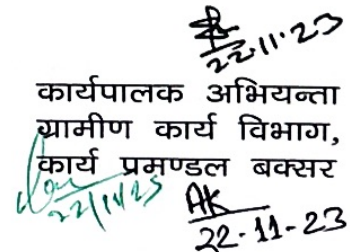 22.11.23
कार्यपालक अभियन्ता
ग्रामीण कार्य विभाग,
कार्य प्रमण्डल बक्सर
22/11/23
AK
22-11-23